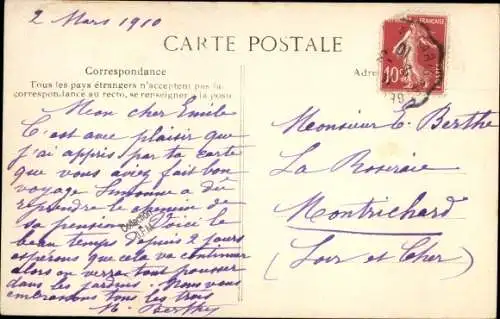 2 Mars 1910
CARTE POSTALE
Correspondance
Tous les pays étrangers n'acceptent pas la
correspondance au recto, se renseigner à la poste
Mon cher Emile
C'est avec plaisir que
j'ai appris par ta carte
que vous avez fait bon
voyage Simonne a dû
reprendre le chemin de
sa pension Voici le
beau temps depuis 2 jours
espérons que cela va continuer
alors on verra tout pousser
dans les jardins. Nous vous
embrassons tous les trois
Berthe
Adre
Monsieur E. Berthe
La Roseraie
Montrichard
(Loir et Cher)
FRANÇAISE
10c
POSTES
Collection